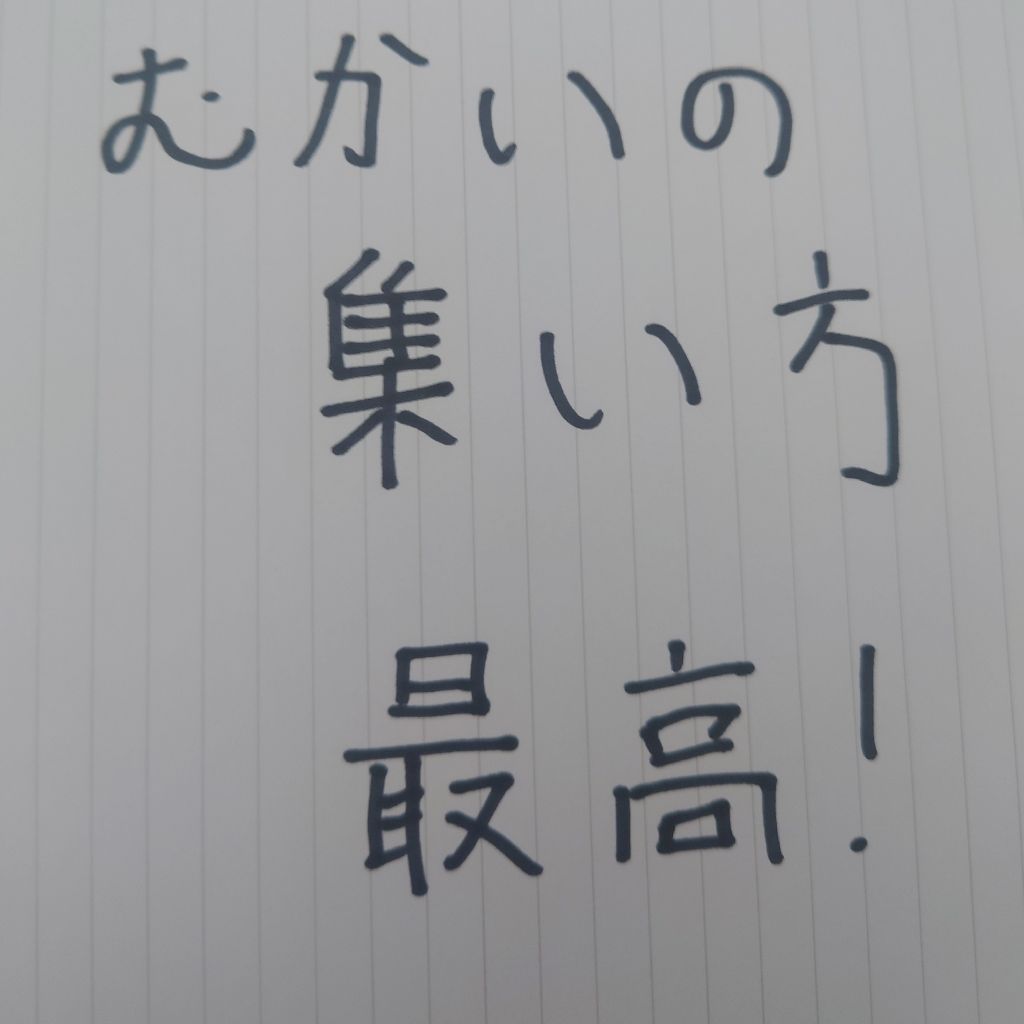 むかいの
集い方
最高!